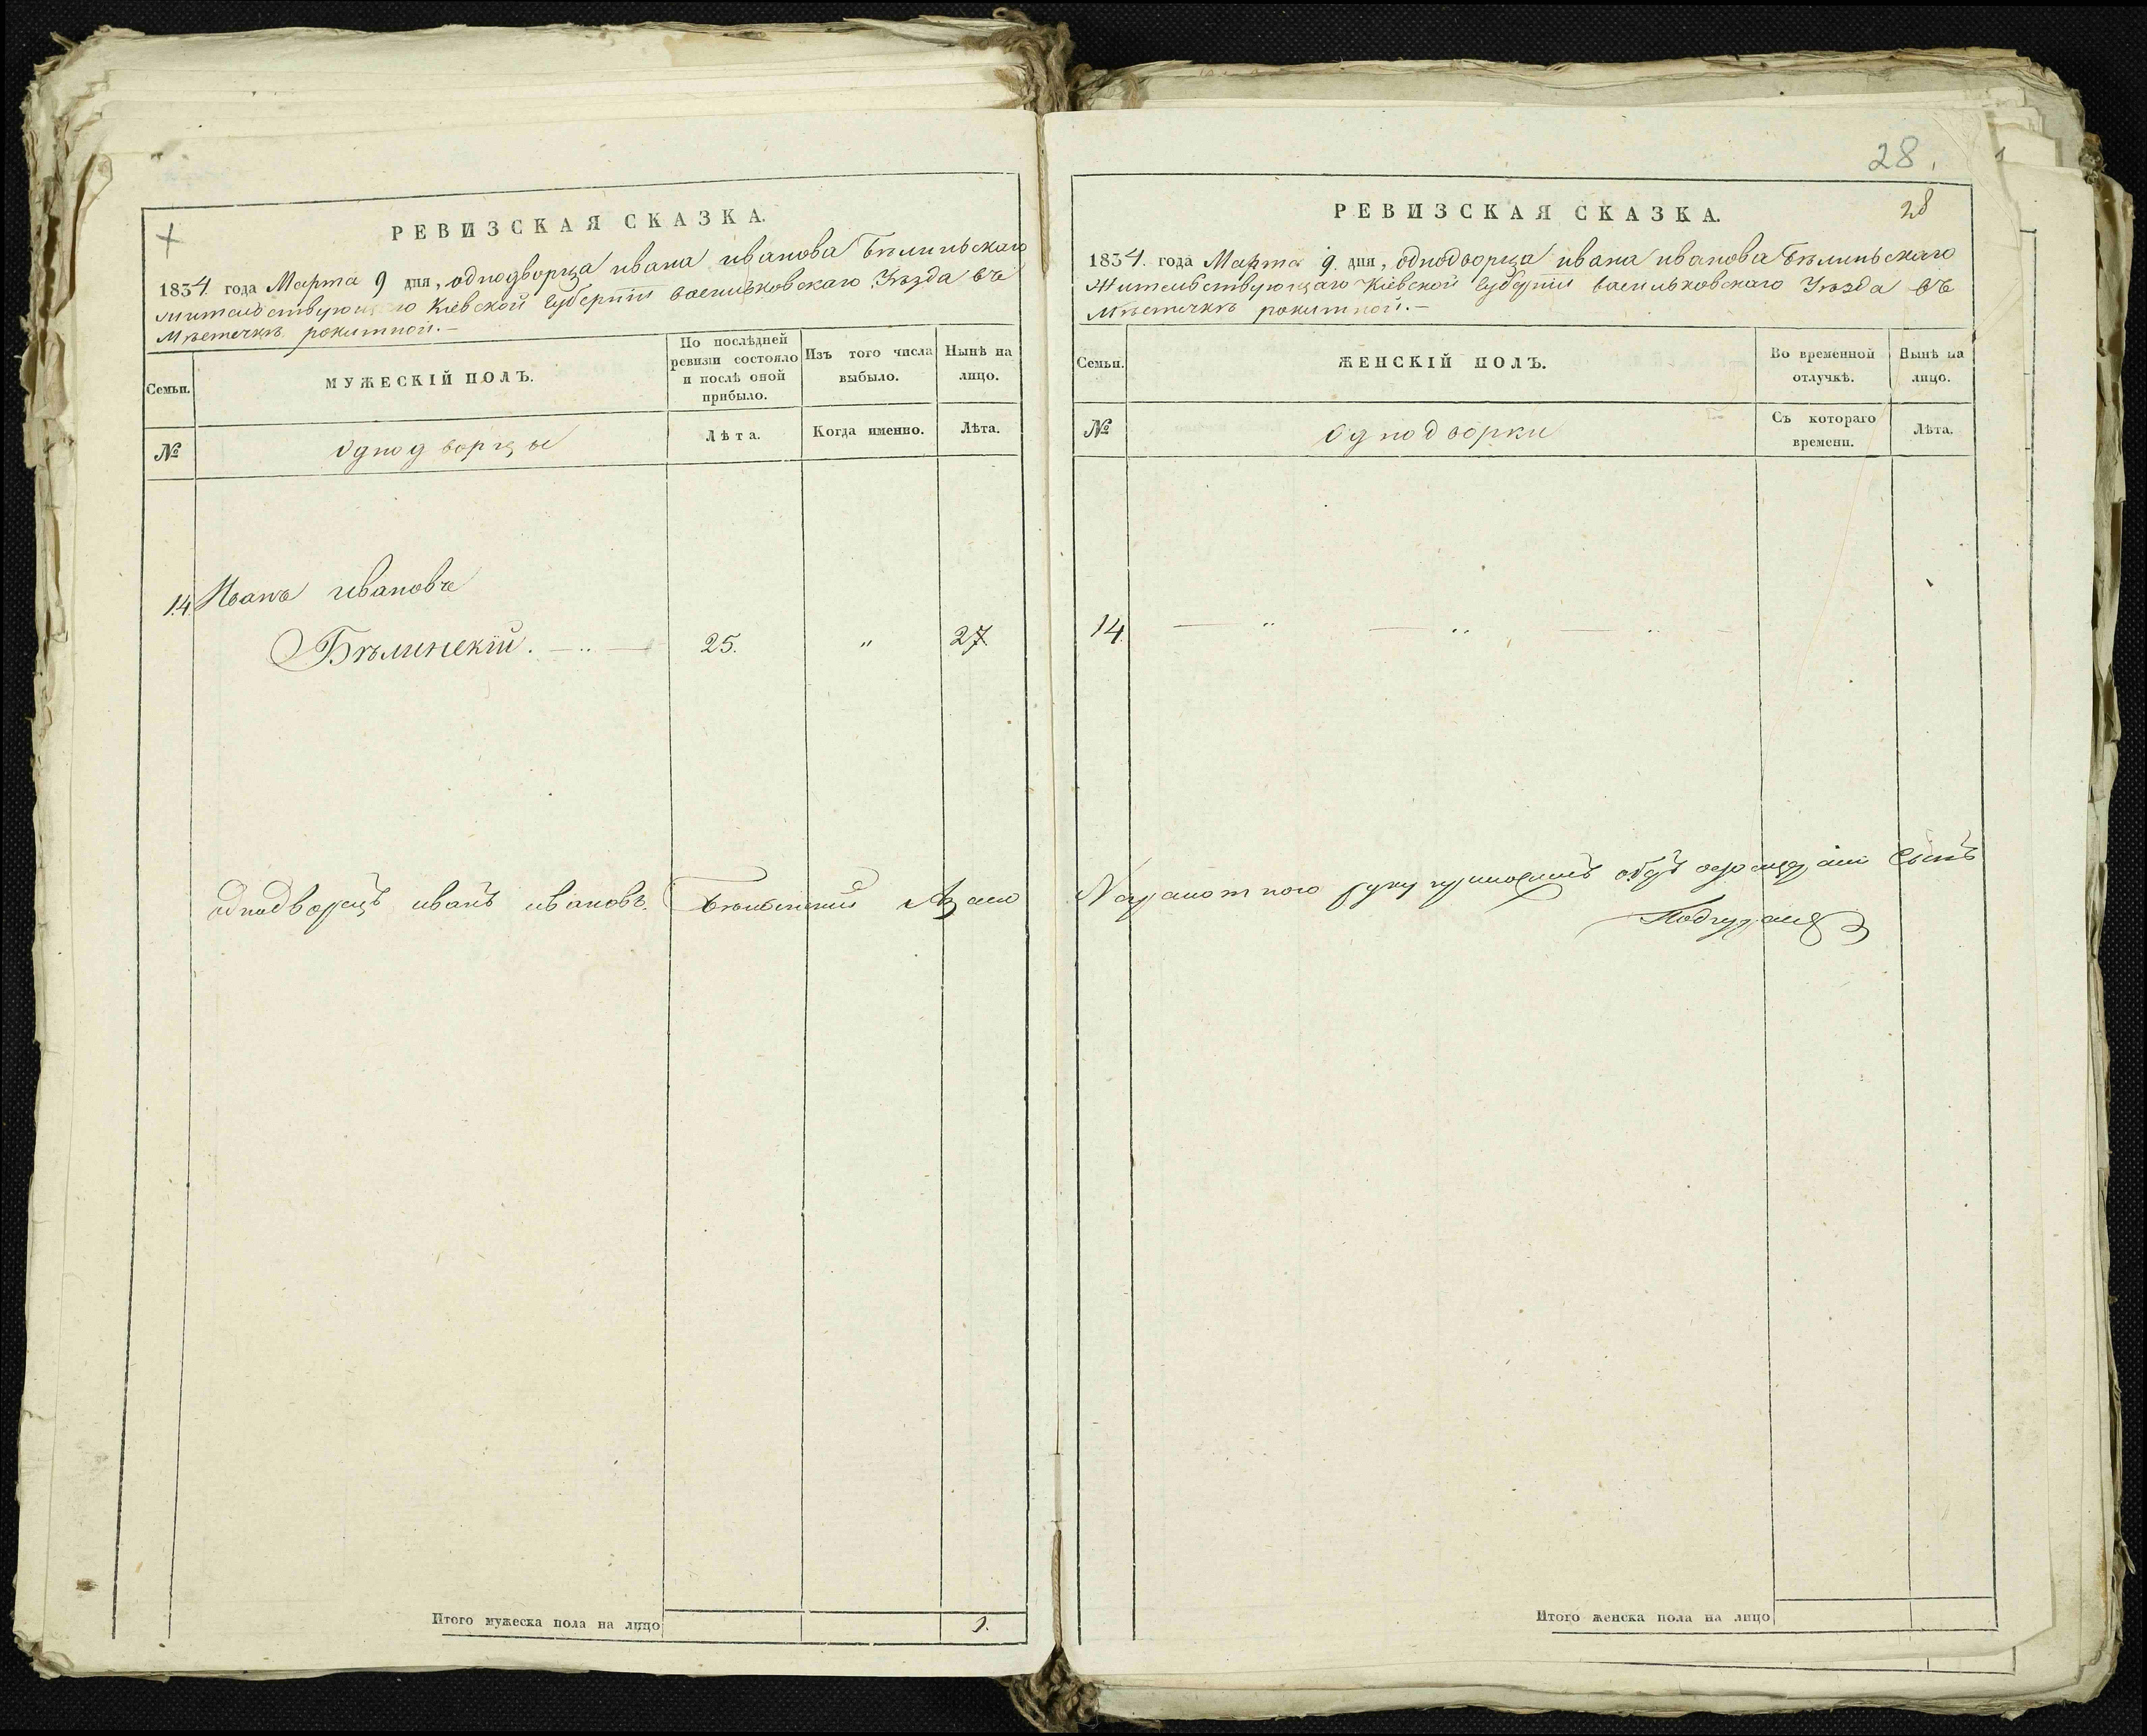 РЕВИЗСКАЯ СКАЗКА.
1834 года Марта 9 дня, однодворца ивана иванова Бѣлиньскаго
жительствующаго Кіевской Губерніи васильковскаго Уѣзда въ
Мѣстечкѣ рокитной.—
Семьи.
МУЖЕСКІЙ ПОЛЪ.
По послѣдней ревизіи состояло и послѣ оной прибыло.
Изъ того числа выбыло.
Нынѣ на лицо.
№
однодворцы
Лѣта.
Когда именно.
Лѣта.
14 Иванъ ивановъ
Бѣлинскій. — „ — 25. „ 27
однодворецъ иванъ ивановъ Бѣлинскій
Итого мужеска пола на лицо 1.
28.
28
РЕВИЗСКАЯ СКАЗКА.
1834. года Марта 9. дня, однодворца ивана иванова Бѣлиньскаго
Жительствующаго Кіевской Губерніи васильковскаго Уѣзда въ
Мѣстечкѣ рокитной.—
Семьи.
ЖЕНСКІЙ ПОЛЪ.
Во временной отлучкѣ.
Нынѣ на лицо.
№
Однодворки
Съ котораго времени.
Лѣта.
14. — „ — „ — „ —
Итого женска пола на лицо